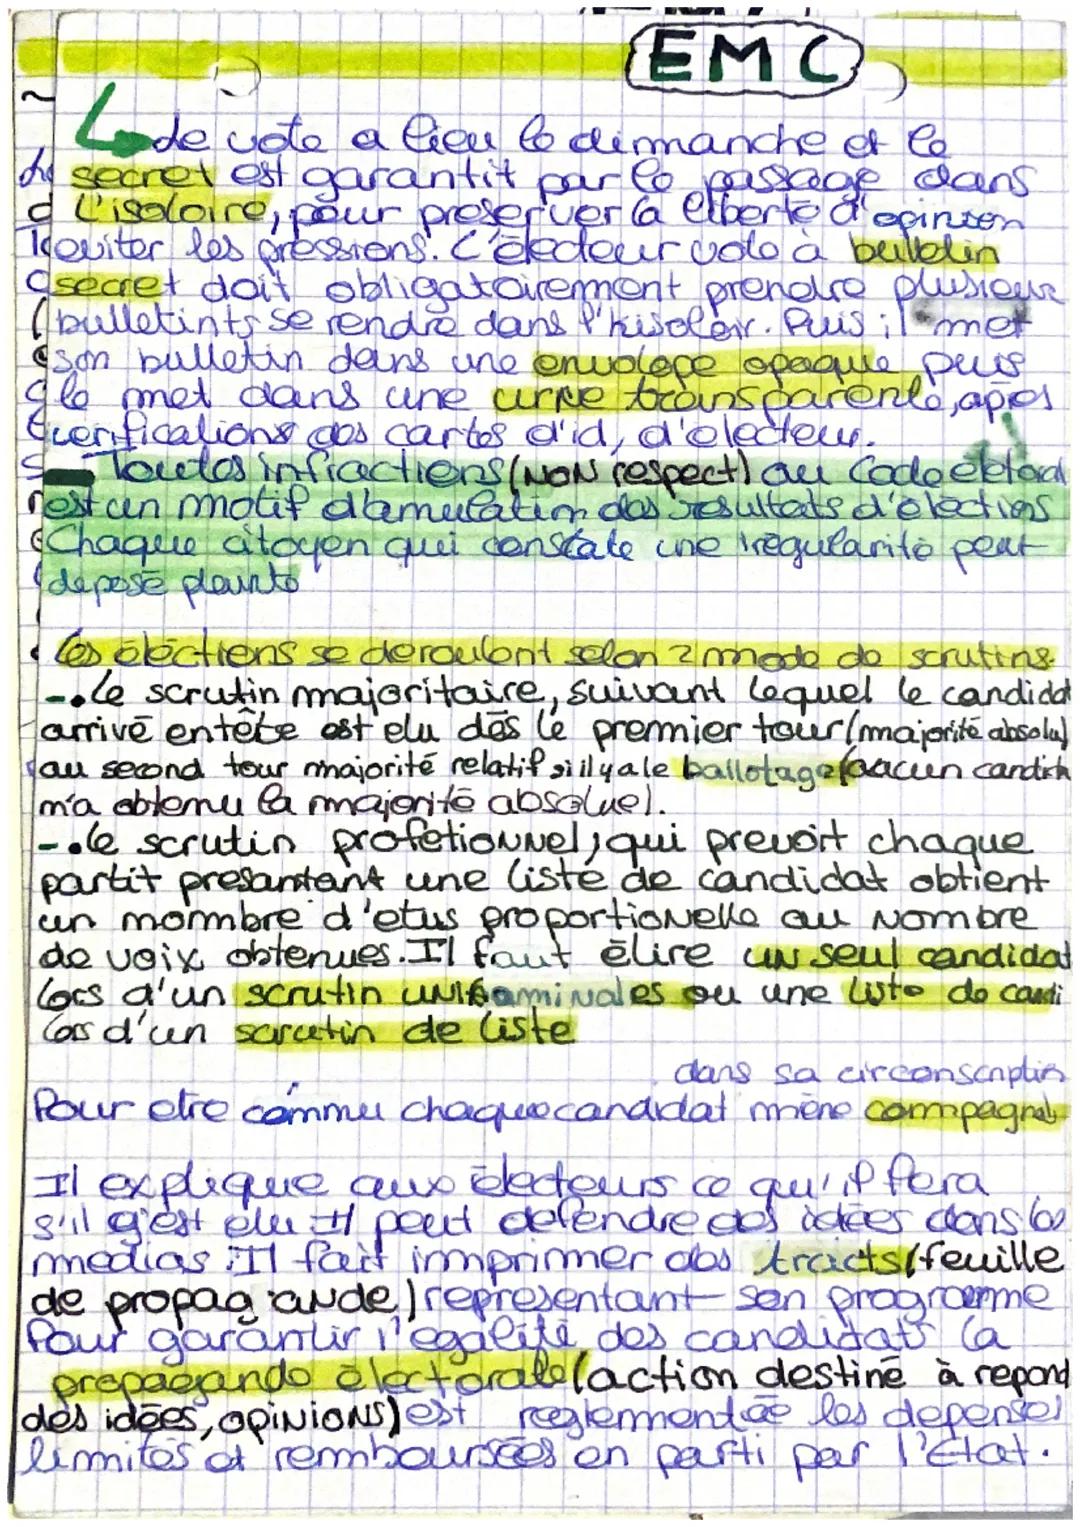 EMC
de vote a lieu le dimanche et le
secret est garantit par le passage dans
L'isoloire, pour preserver la liberté d'opinion
eviter les pressions. L'électeur vote à bulletin
secret doit obligatoirement prendre plusieur
bulletints se rendre dans l'hisoloir. Puis il met
son bulletin dans une envolope opaque puis
le met dans une urne transparente, apès
verifications des cartes d'id, d'electeur.
Toutes infractions (NON respect) au Code eletoral
est un motif d'annulation des resultats d'élections
Chaque citoyen qui constate une irégularité peut
deposé plainte
Les éléctions se deroulent selon 2 mode de scrutins.
-. Le scrutin majoritaire, suivant lequel le candidat
arrivé entête est elu dès le premier tour (majorité absolu)
au second tour majorité relatif si il y a le ballotage (aucun candida
n'a obtenu la majorité absolue).
-. le scrutin profetionnel, qui prevoit chaque
partit presantant une liste de candidat obtient
un nommbre d'elus proportionelle au Nombre
de voix obtenues. Il faut élire un seul candidat
lors d'un scrutin uninaminales ou une liste de candi
lors d'un scrutin de liste
dans sa circonscription
Pour etre connu chaque candidat mène campagne
Il explique aux électeurs ce qu'il fera
s'il g'est elu Il peut defendre des idées dans les
medias. Il fait imprimer des tracts (feuille
de propagande) representant son programme
Pour garantir l'egalité des candidats la
propagande électorale (action destiné à repond
des idées, opinions) est reglementée les depenses
limités et remboursées en parti par l'État.